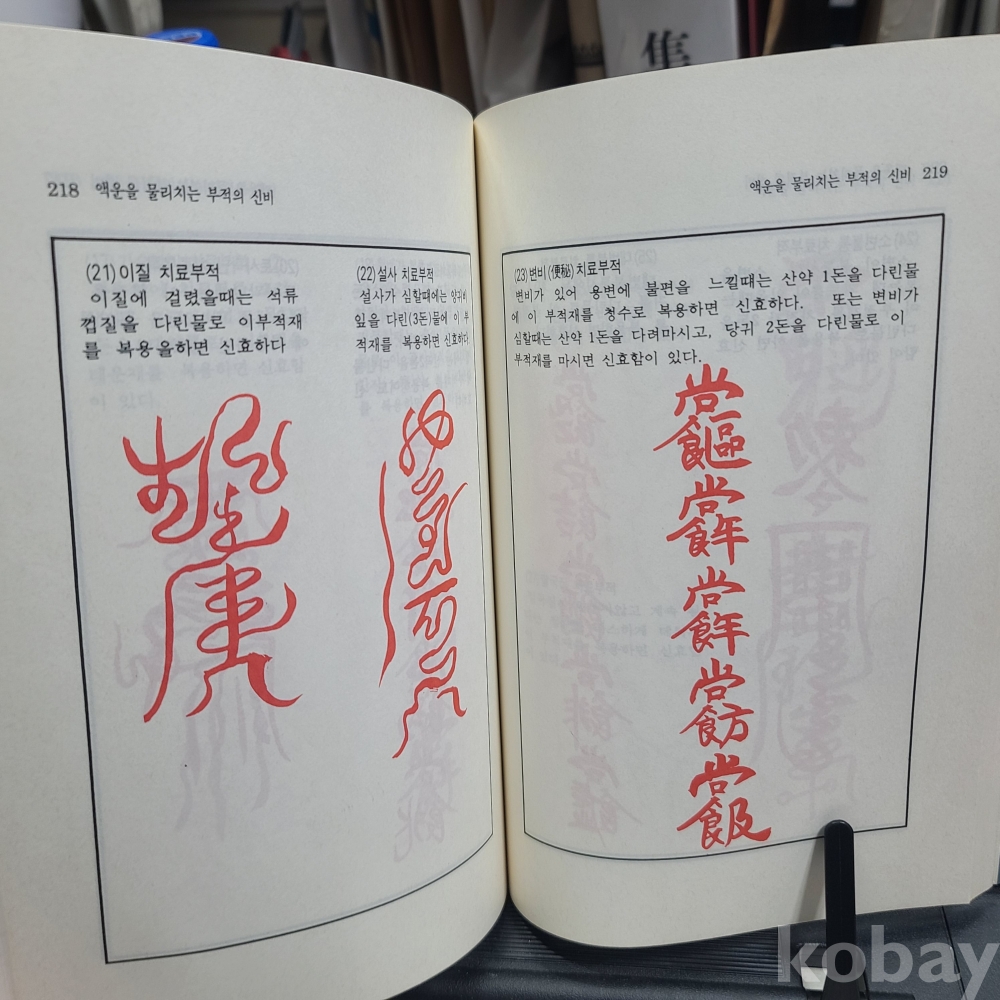 集
218 액운을 물리치는 부적의 신비
(21)이질 치료부적
이질에 걸렸을때는 석류
껍질을 다린물로 이부적재
를 복용을하면 신효하다
(22)설사 치료부적
설사가 심할때에는 양귀비
잎을 다린(3돈)물에 이 부
적재를 복용하면 신효하다
액운을 물리치는 부적의 신비 219
(23)변비(便秘)치료부적
변비가 있어 용변에 불편을 느낄때는 산약 1돈을 다린물
에 이 부적재를 청수로 복용하면 신효하다. 또는 변비가
심할때는 산약 1돈을 다려마시고, 당귀 2돈을 다린물로 이
부적재를 마시면 신효함이 있다.
kobay